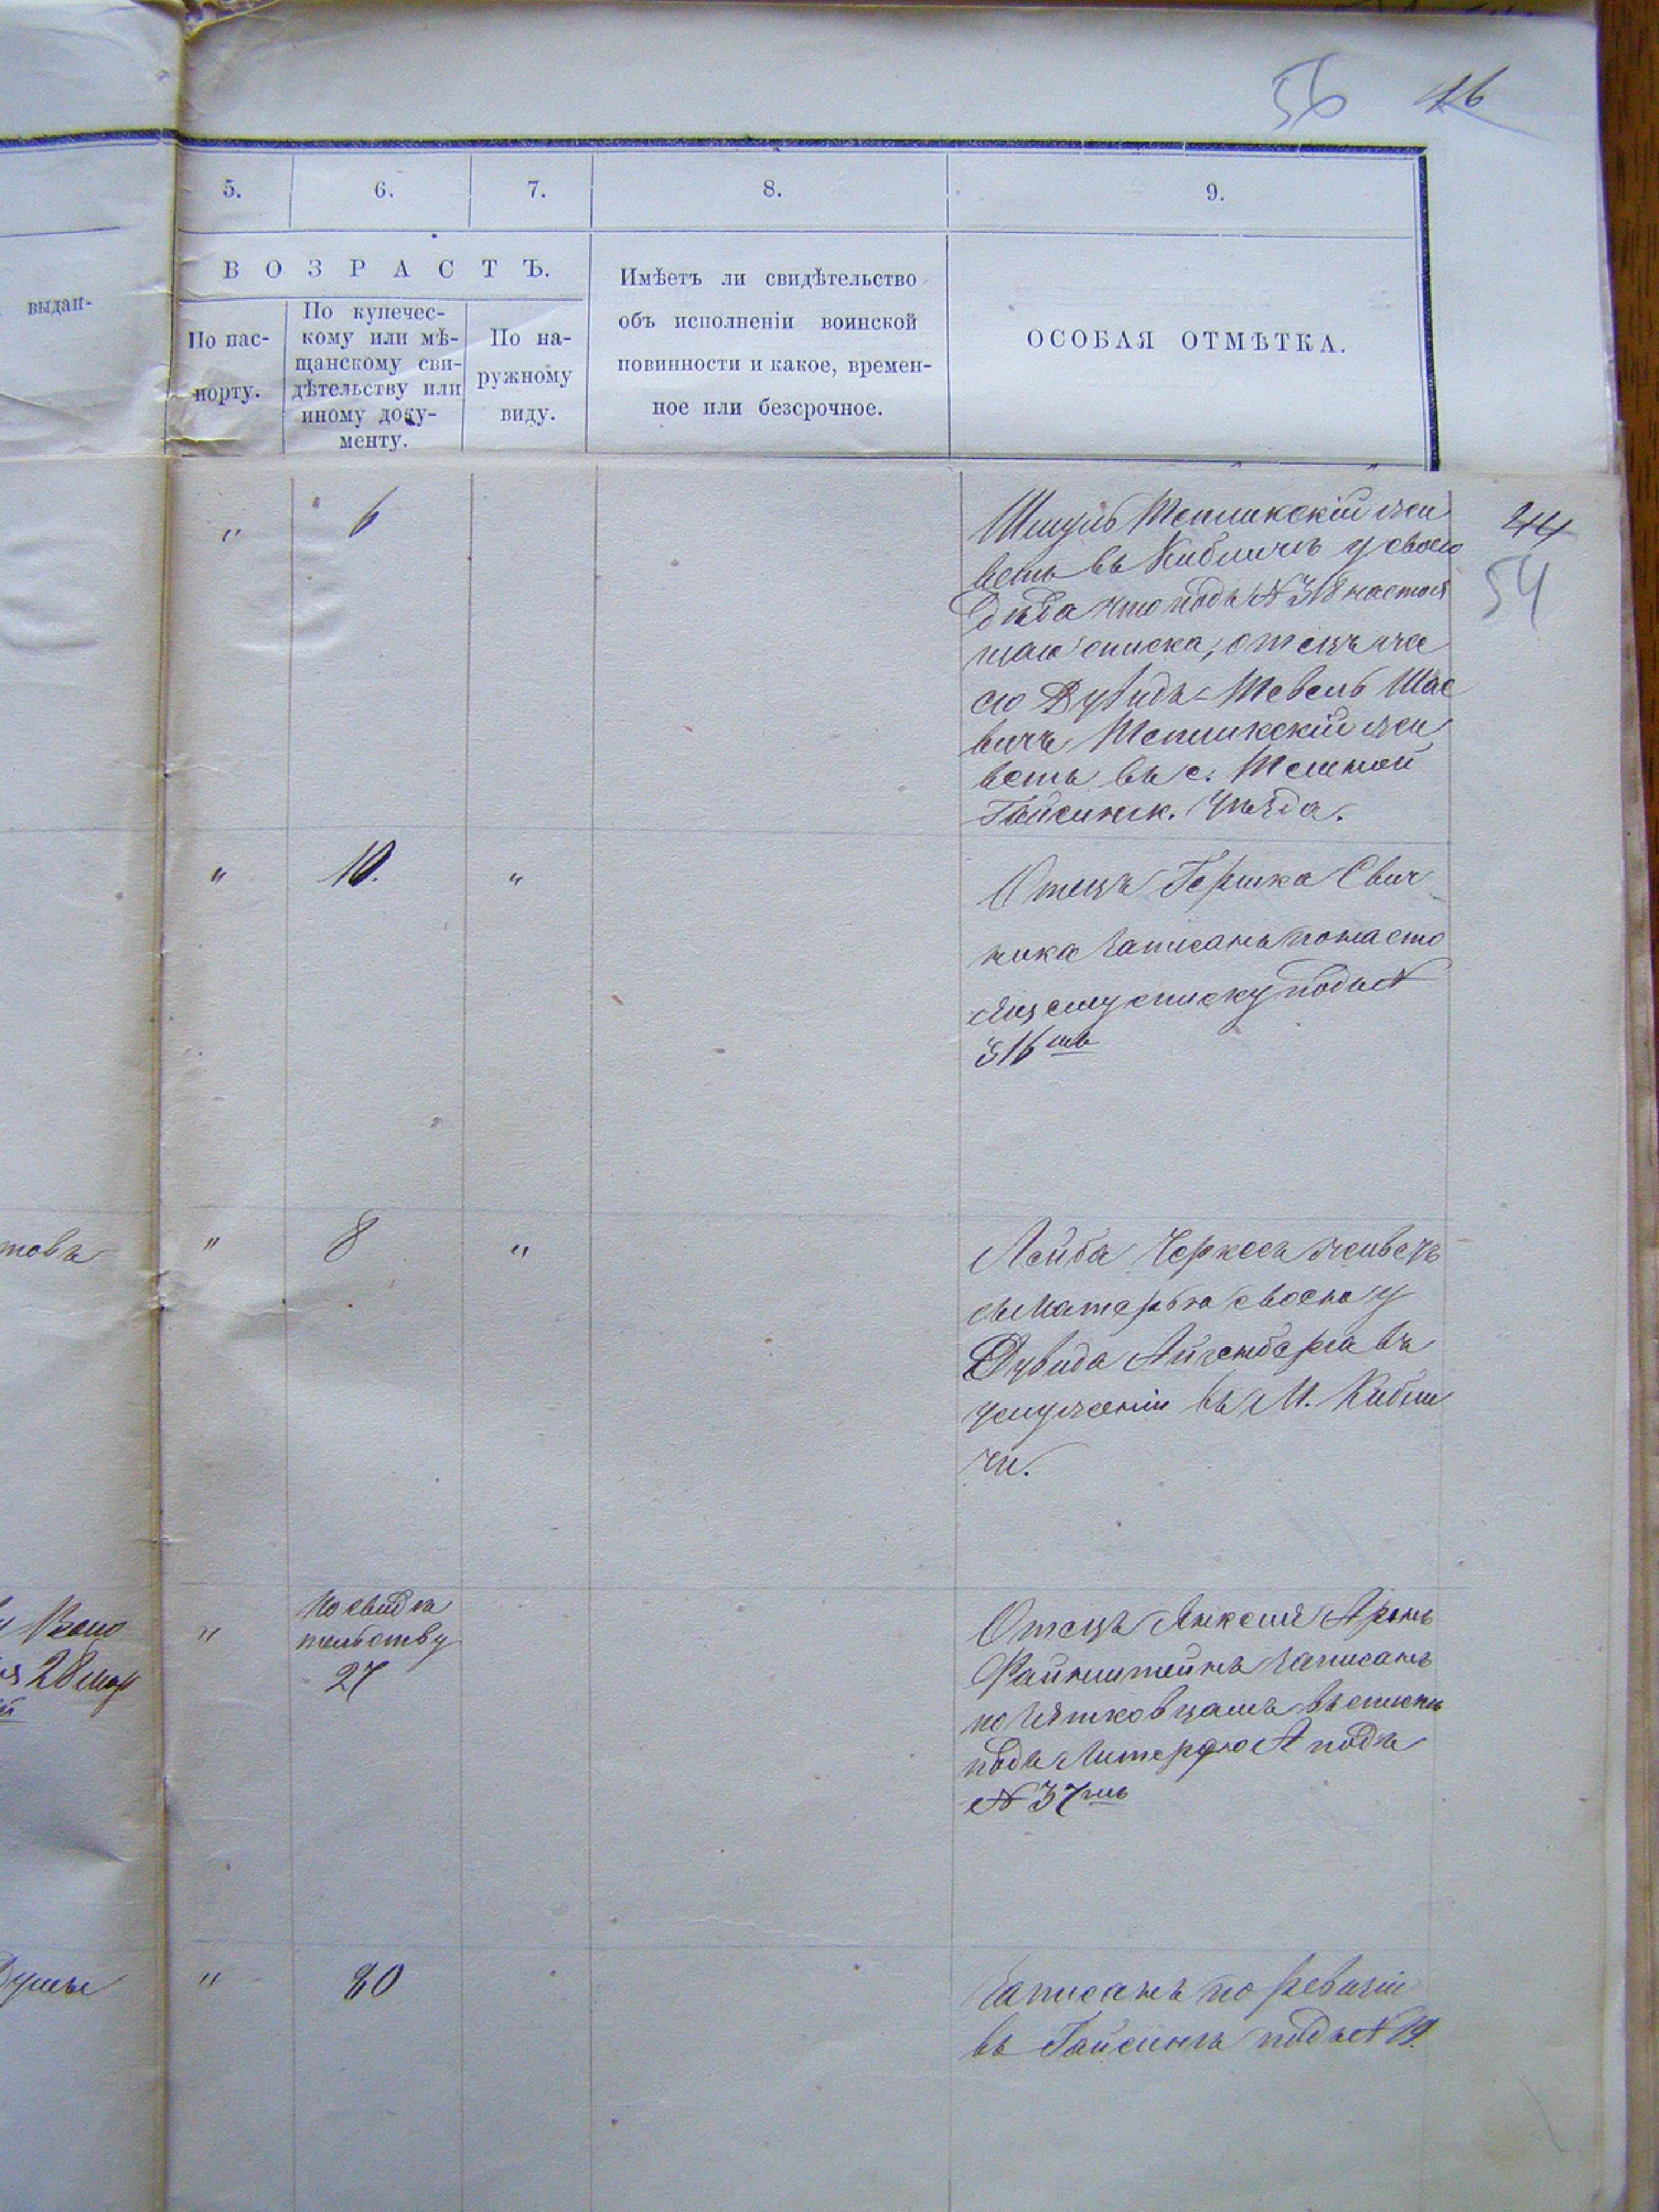 56 46
5. 6. 7. 8. 9.
ВОЗРАСТЪ.
выдан-
По пас-
порту.
По купечес-
кому или мѣ-
щанскому сви-
дѣтельству или
иному доку-
менту.
По на-
ружному
виду.
Имѣетъ ли свидѣтельство
объ исполненіи воинской
повинности и какое, времен-
ное или безсрочное.
ОСОБАЯ ОТМѢТКА.
" 6
Шмуль Тепликскій жи
ветъ въ Кибличѣ у своего
Дѣда что подъ № 318 настоя
щаго списка, отецъ же
его Дувидъ-Тевель
Тепликскій жи
ветъ въ с.
Гайсинск. уѣзда.
44
54
" 10. "
Отецъ Гершка Свич
ника записанъ по насто
ящему списку подъ №
316мъ
товъ
" 8 "
Лейба Черкесъ живетъ
съ матерью своею у
Дувида Айзенберга въ
услуженіи въ М. Кибли
чи.
28 мар
"
По свидѣ
тельству
27
Отецъ Янкеля Аронъ
Файнштейнъ записанъ
подъ Литерою А подъ
№ 37мъ
" 80
Записанъ по ревизіи
въ Гайсинѣ подъ № 19.